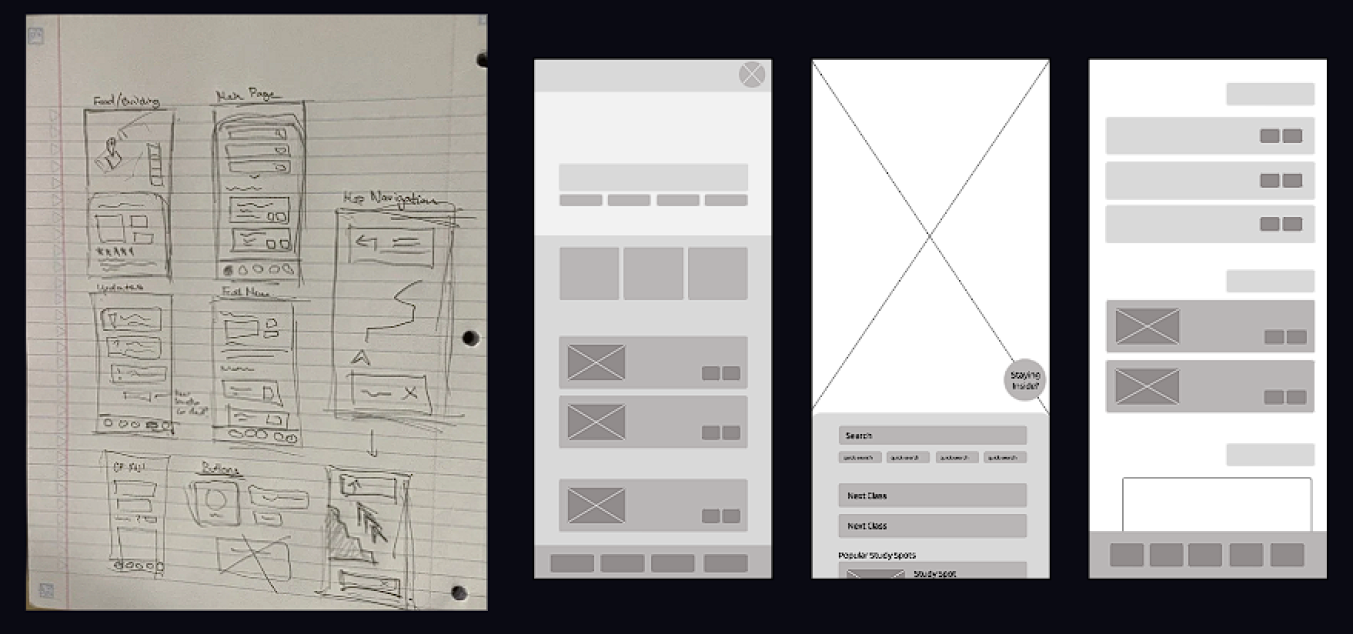 Food/Building
Main Page
Map Navigation
Updates
Buttons
Staying
Inside?
Search
quick search quick search quick search quick search
Next Class
Next Class
Popular Study Spots
Study Spot